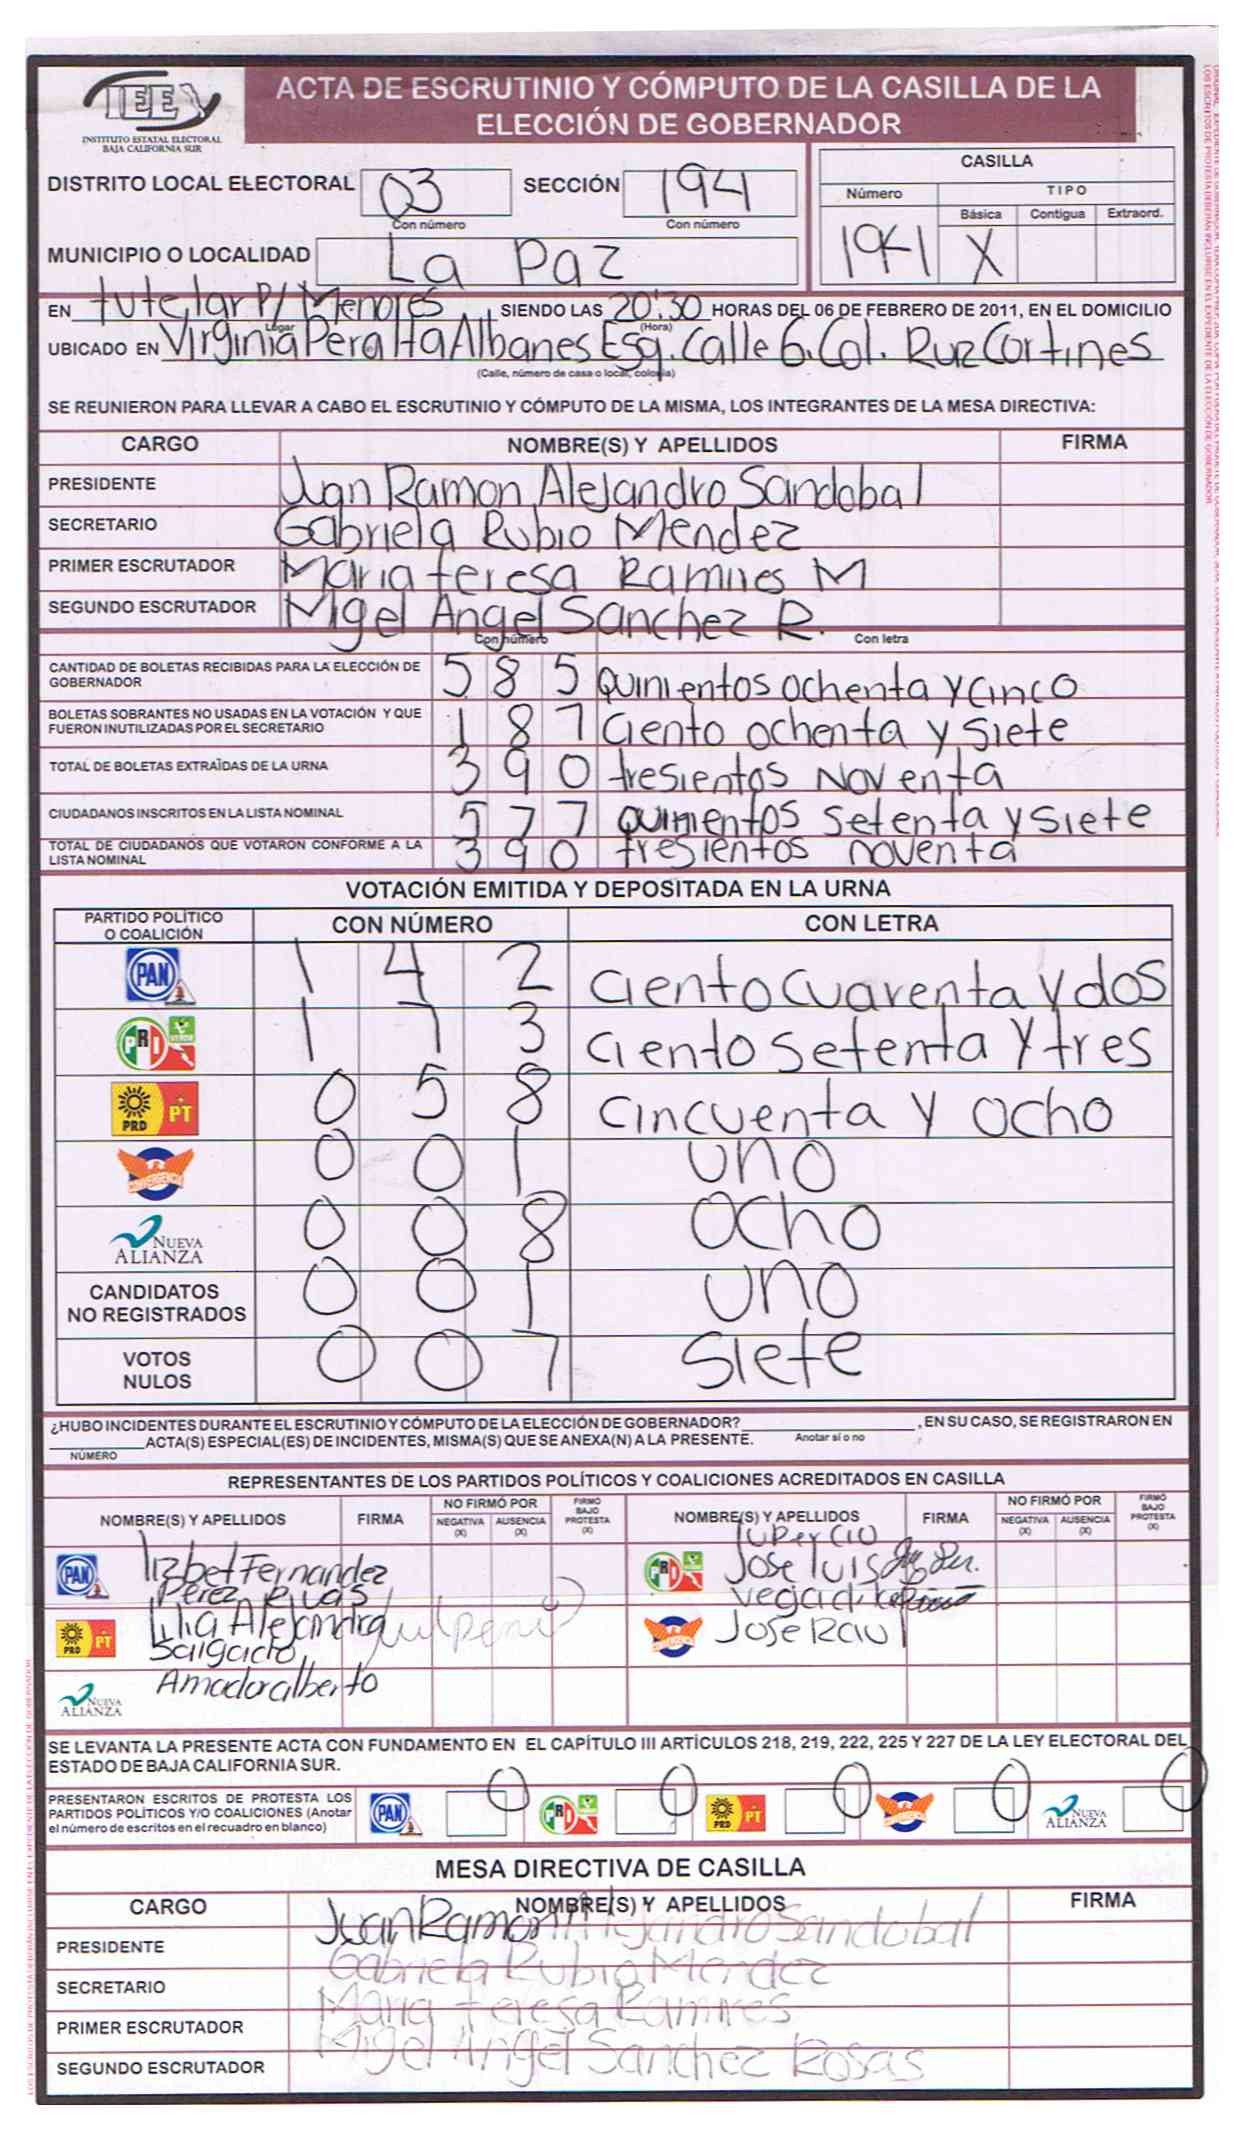 IEEY
INSTITUTO ESTATAL ELECTORAL
BAJA CALIFORNIA SUR
ACTA DE ESCRUTINIO Y CÓMPUTO DE LA CASILLA DE LA
ELECCIÓN DE GOBERNADOR
DISTRITO LOCAL ELECTORAL 03 SECCIÓN 194
Con número Con número
CASILLA
Número TIPO
Básica Contigua Extraord.
194 X
MUNICIPIO O LOCALIDAD La Paz
EN tutelar P/ Menores SIENDO LAS 20:30 HORAS DEL 06 DE FEBRERO DE 2011, EN EL DOMICILIO
Lugar (Hora)
UBICADO EN Virginia Peralta Albanes Esq. Calle 6. Col. Ruz Cortines
(Calle, número de casa o local, colonia)
SE REUNIERON PARA LLEVAR A CABO EL ESCRUTINIO Y CÓMPUTO DE LA MISMA, LOS INTEGRANTES DE LA MESA DIRECTIVA:
CARGO NOMBRE(S) Y APELLIDOS FIRMA
PRESIDENTE Juan Ramon Alejandro Sandobal
SECRETARIO Gabriela Rubio Mendez
PRIMER ESCRUTADOR Maria teresa Ramires M
SEGUNDO ESCRUTADOR Migel Angel Sanchez R.
Con número Con letra
CANTIDAD DE BOLETAS RECIBIDAS PARA LA ELECCIÓN DE
GOBERNADOR 5 8 5 quinientos ochenta y cinco
BOLETAS SOBRANTES NO USADAS EN LA VOTACIÓN Y QUE
FUERON INUTILIZADAS POR EL SECRETARIO 1 8 7 ciento ochenta y siete
TOTAL DE BOLETAS EXTRAÍDAS DE LA URNA 3 9 0 tresientos Noventa
CIUDADANOS INSCRITOS EN LA LISTA NOMINAL 5 7 7 quinientos setenta y siete
TOTAL DE CIUDADANOS QUE VOTARON CONFORME A LA
LISTA NOMINAL 3 9 0 tresientos noventa
VOTACIÓN EMITIDA Y DEPOSITADA EN LA URNA
PARTIDO POLÍTICO
O COALICIÓN CON NÚMERO CON LETRA
PAN 1 4 2 ciento cuarenta y dos
PRI VERDE 1 7 3 ciento setenta y tres
PRD PT 0 5 8 cincuenta y ocho
CONVERGENCIA 0 0 1 uno
NUEVA ALIANZA 0 0 8 ocho
CANDIDATOS
NO REGISTRADOS 0 0 1 uno
VOTOS
NULOS 0 0 7 siete
¿HUBO INCIDENTES DURANTE EL ESCRUTINIO Y CÓMPUTO DE LA ELECCIÓN DE GOBERNADOR? , EN SU CASO, SE REGISTRARON EN
Anotar sí o no
ACTA(S) ESPECIAL(ES) DE INCIDENTES, MISMA(S) QUE SE ANEXA(N) A LA PRESENTE.
NÚMERO
REPRESENTANTES DE LOS PARTIDOS POLÍTICOS Y COALICIONES ACREDITADOS EN CASILLA
NOMBRE(S) Y APELLIDOS FIRMA NO FIRMÓ POR NEGATIVA (X) AUSENCIA (X) FIRMÓ BAJO PROTESTA (X)
NOMBRE(S) Y APELLIDOS FIRMA NO FIRMÓ POR NEGATIVA (X) AUSENCIA (X) FIRMÓ BAJO PROTESTA (X)
PAN lizbet Fernandez
Perez
PRI
Jose luis
PRD PT lilia Alejandra
Salgado
CONVERGENCIA Jose Raul
NUEVA ALIANZA Amador alberto
SE LEVANTA LA PRESENTE ACTA CON FUNDAMENTO EN EL CAPÍTULO III ARTÍCULOS 218, 219, 222, 225 Y 227 DE LA LEY ELECTORAL DEL
ESTADO DE BAJA CALIFORNIA SUR.
PRESENTARON ESCRITOS DE PROTESTA LOS
PARTIDOS POLÍTICOS Y/O COALICIONES (Anotar
el número de escritos en el recuadro en blanco)
PAN 0 PRI 0 PRD PT 0 CONVERGENCIA 0 NUEVA ALIANZA 0
MESA DIRECTIVA DE CASILLA
CARGO NOMBRE(S) Y APELLIDOS FIRMA
PRESIDENTE Juan Ramon Alejandro Sandobal
SECRETARIO Gabriela Rubio Mendez
PRIMER ESCRUTADOR Maria teresa Ramires
SEGUNDO ESCRUTADOR Migel Angel Sanchez Rosas